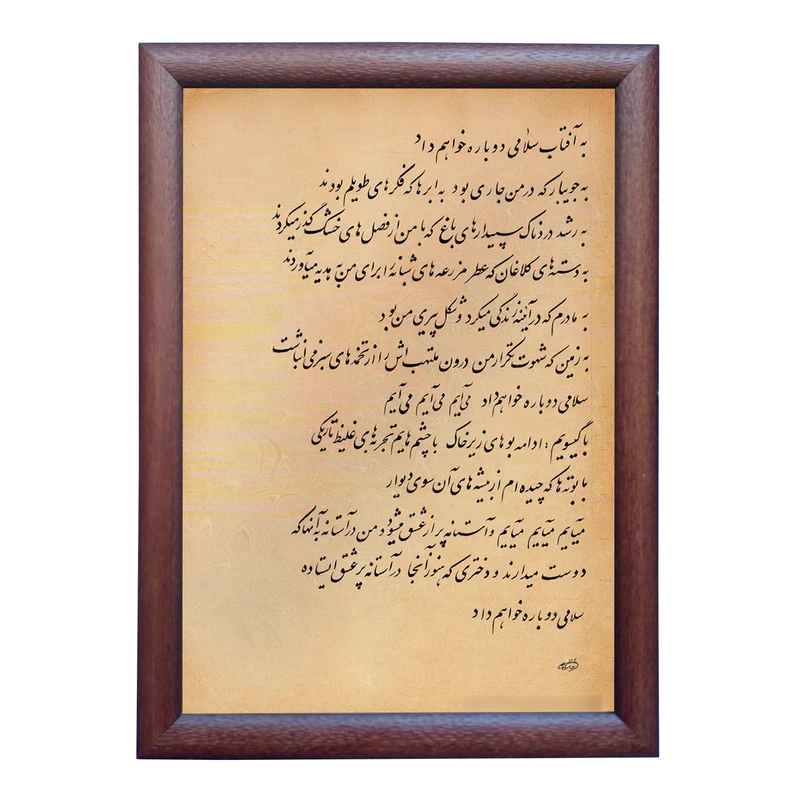 به آفتاب سلامی دوباره خواهم داد
به جویبار که در من جاری بود به ابرها که فکرهای طویلم بودند
به رشد دردناک سپیدارهای باغ که با من از فصل های خشک گذر میکردند
به دسته های کلاغان که عطر مزرعه های شبانه را برای من به هدیه میآوردند
به مادرم که در آینه زندگی میکرد و شکل پیری من بود
به زمین که شهوت تکرار من درون ملتهب اش را از تخمه های سبز می انباشت
سلامی دوباره خواهم داد می آیم می آیم می آیم
با گیسویم : ادامه بوهای زیر خاک با چشم هایم تجربه های غلیظ تاریکی
با بوته ها که چیده ام از بیشه های آن سوی دیوار
میآیم میآیم میآیم و آستانه پر از عشق میشود و من در آستانه به آنها که
دوست میدارند و دختری که هنوز آنجا در آستانه پر عشق ایستاده
سلامی دوباره خواهم داد